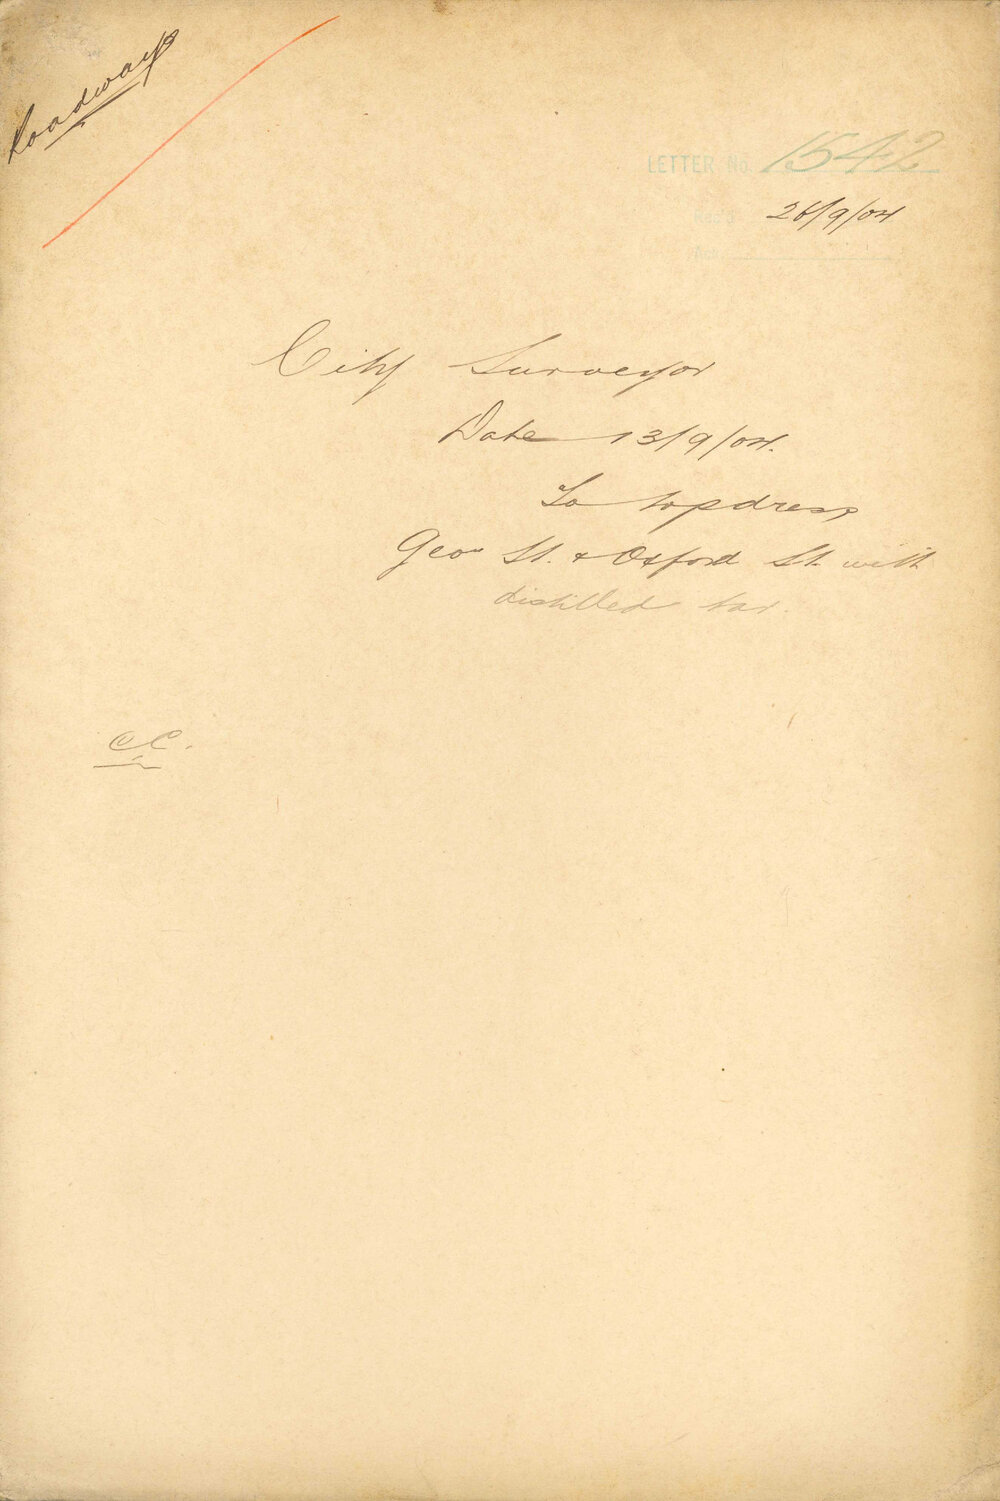 Roadways
LETTER No. 1542
Rec'd 26/9/04
Ans.
City Surveyor
Date 13/9/04.
To topdress
Geo. St. & Oxford St. with
distilled tar.
CC.